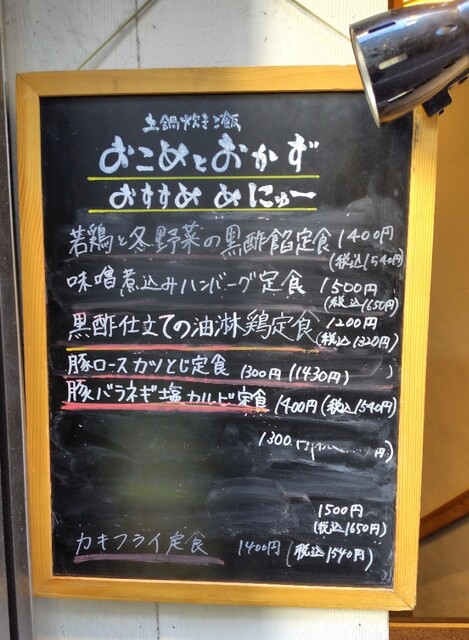 土鍋炊きご飯
おこめとおかず
おすすめめにゅー
若鶏と冬野菜の黒酢餡定食 1400円
(税込1540円)
味噌煮込みハンバーグ定食 1500円
(税込1650円)
黒酢仕立ての油淋鶏定食 1200円
(税込1320円)
豚ロースカツとじ定食 1300円(1430円)
豚バラネギ塩カルビ定食 1400円(税込1540円)
1300円 円)
1500円
(税込1650円)
カキフライ定食 1400円(税込1540円)